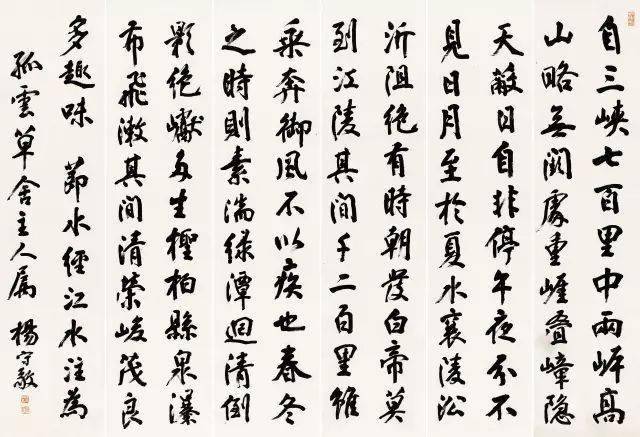 自三峽七百里中兩岸高
山略無闕處重崖疊嶂隱
天蔽日自非停午夜分不
見日月至於夏水襄陵沿
泝阻絕有時朝發白帝莫
到江陵其間千二百里雖
乘奔御風不以疾也春冬
之時則素湍綠潭迴清倒
影絕巘多生檉柏縣泉瀑
布飛漱其間清榮峻茂良
多趣味 節水經江水注為
孤雲草舍主人屬 楊守敬